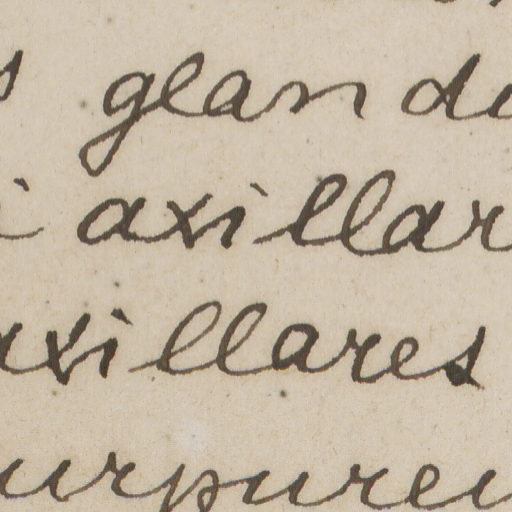 s glandu
i axillar
axillares
urpureu